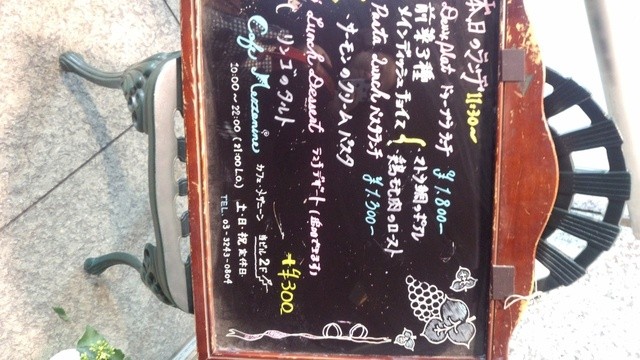 本日のランチ 11:30〜
Deux plat ドゥープラ ランチ ¥1.800ー
前菜3種
メインディッシュチョイス { マトウ鯛のポワレ
鶏モモ肉のロースト
Pasta Lunch パスタランチ ¥1.300ー
サーモンのクリームパスタ
Lunch Dessert ランチデザート
リンゴのタルト +¥300
Cafe Mezzanine カフェ・メザニーン 2F
10:00〜22:00 (21:00 L.O.) 土・日・祝 定休日
TEL. 03-3243-0804